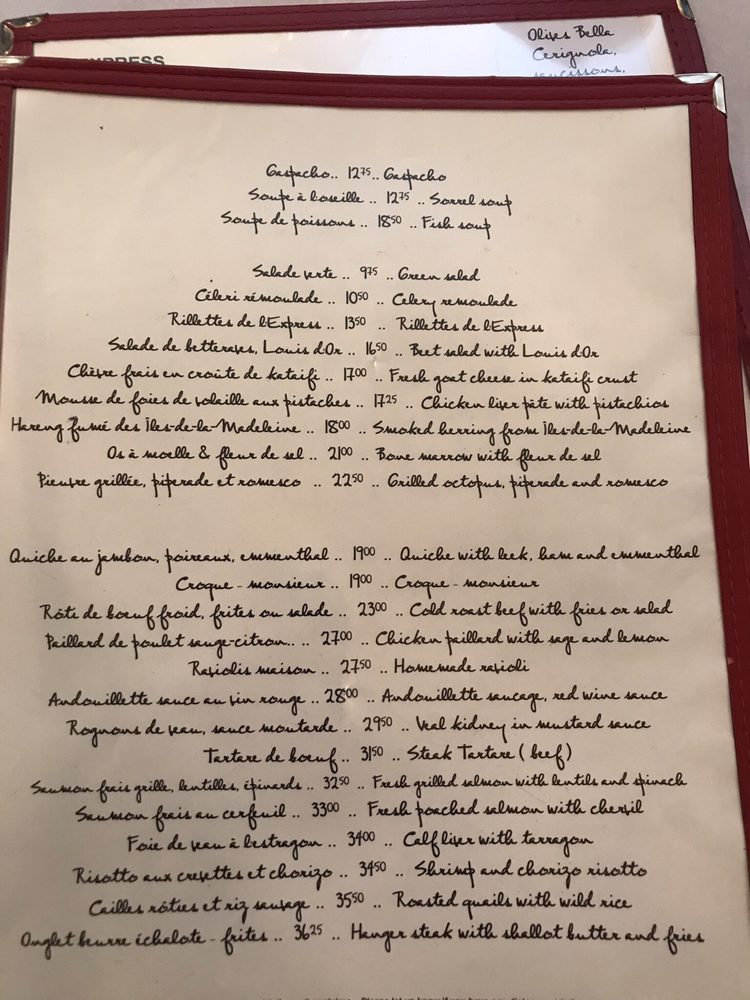 EXPRESS
Olives Bella
Cerignola,
saucissons,
Gaspacho.. 12 75.. Gaspacho
Soupe à l'oseille .. 12 75 .. Sorrel soup
Soupe de poissons .. 18 50 .. Fish soup
Salade verte .. 9 75 .. Green salad
Céleri rémoulade .. 10 50 .. Celery remoulade
Rillettes de l'Express .. 13 50 .. Rillettes de l'Express
Salade de betteraves, Louis d'Or .. 16 50 .. Beet salad with Louis d'Or
Chèvre frais en croûte de kataifi .. 17 00 .. Fresh goat cheese in kataifi crust
Mousse de foies de volaille aux pistaches .. 17 25 .. Chicken liver pâté with pistachios
Hareng fumé des Îles-de-la-Madeleine .. 18 00 .. Smoked herring from Îles-de-la-Madeleine
Os à moelle & fleur de sel .. 21 00 .. Bone marrow with fleur de sel
Pieuvre grillée, piperade et romesco .. 22 50 .. Grilled octopus, piperade and romesco
Quiche au jambon, poireaux, emmenthal .. 19 00 .. Quiche with leek, ham and emmenthal
Croque - monsieur .. 19 00 .. Croque - monsieur
Rôti de boeuf froid, frites ou salade .. 23 00 .. Cold roast beef with fries or salad
Paillard de poulet sauge-citron.. .. 27 00 .. Chicken paillard with sage and lemon
Raviolis maison .. 27 50 .. Homemade ravioli
Andouillette sauce au vin rouge .. 28 00 .. Andouillette sausage, red wine sauce
Rognons de veau, sauce moutarde .. 29 50 .. Veal kidney in mustard sauce
Tartare de boeuf .. 31 50 .. Steak Tartare ( beef )
Saumon frais grille, lentilles, épinards .. 32 50 .. Fresh grilled salmon with lentils and spinach
Saumon frais au cerfeuil .. 33 00 .. Fresh poached salmon with chervil
Foie de veau à l'estragon .. 34 00 .. Calf liver with tarragon
Risotto aux crevettes et chorizo .. 34 50 .. Shrimp and chorizo risotto
Cailles rôties et riz sauvage .. 35 50 .. Roasted quails with wild rice
Onglet beurre échalote - frites .. 36 25 .. Hanger steak with shallot butter and fries